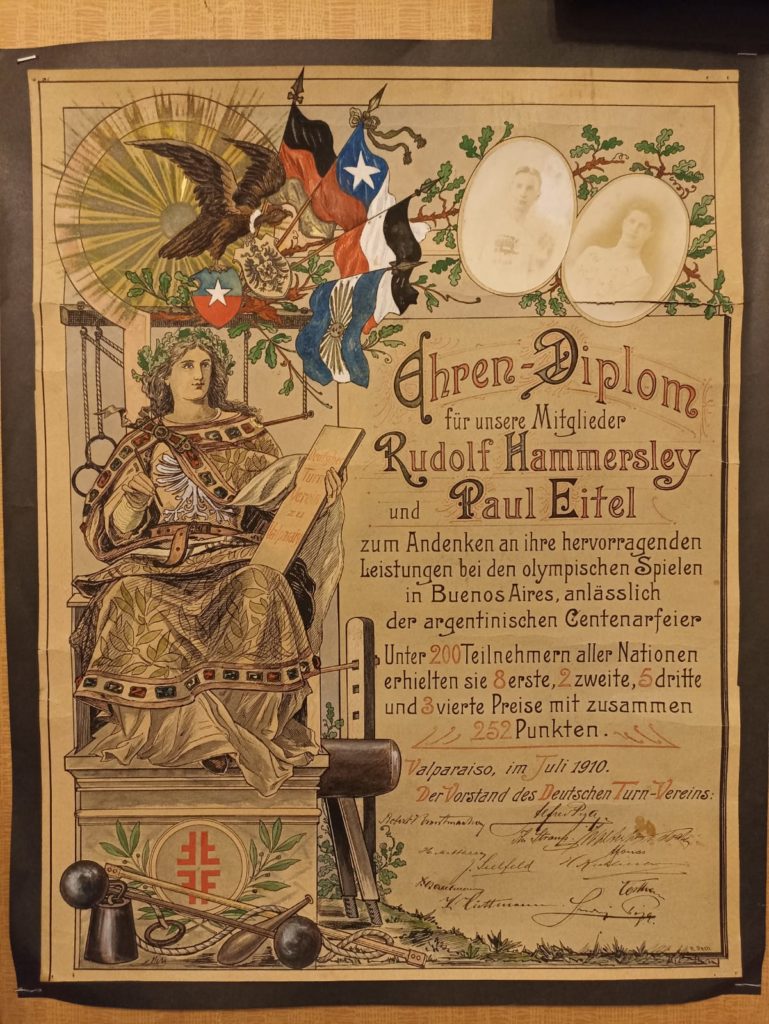 Ehren-Diplom
für unsere Mitglieder
Rudolf Hammersley
und Paul Eitel
zum Andenken an ihre hervorragenden
Leistungen bei den olympischen Spielen
in Buenos Aires, anlässlich
der argentinischen Centenarfeier
Unter 200 Teilnehmern aller Nationen
erhielten sie 8 erste, 2 zweite, 5 dritte
und 3 vierte Preise mit zusammen
252 Punkten.
Valparaiso, im Juli 1910.
Der Vorstand des Deutschen Turn-Vereins:
Deutscher
Turn
Verein
zu
Valparaiso